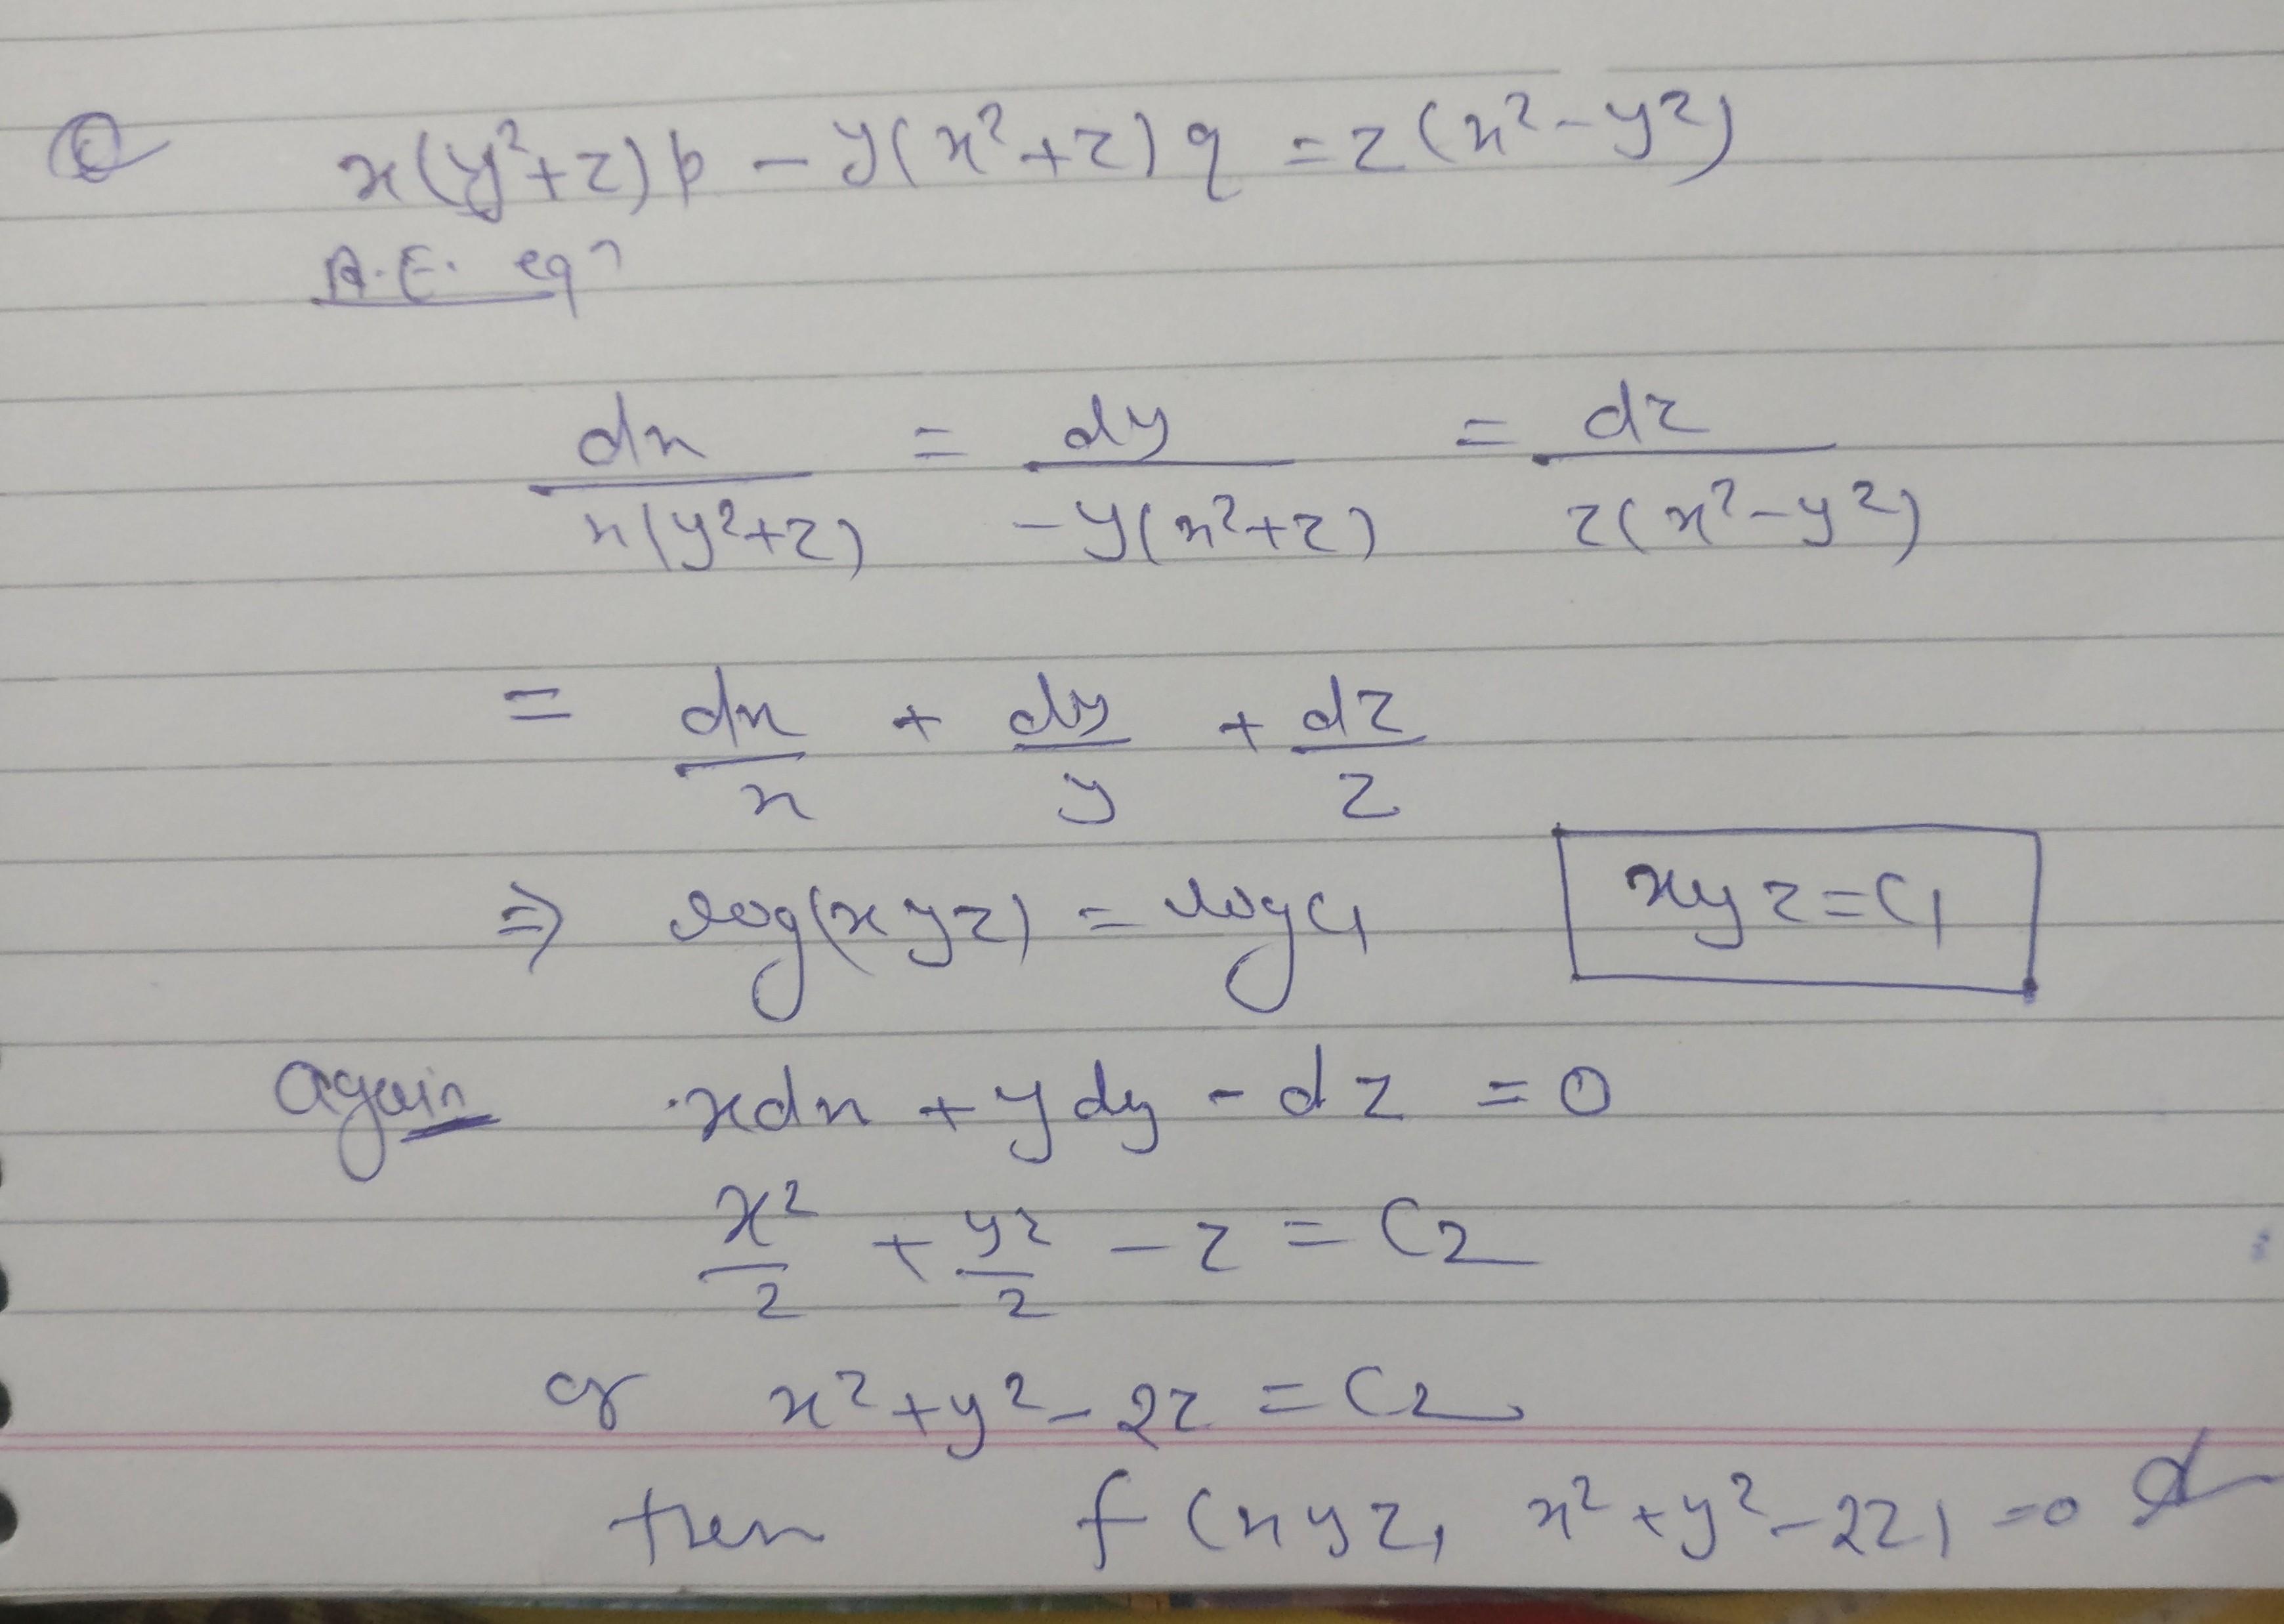 Q x(y²+z)p − y(x²+z)q = z(x²−y²)
A.E. eqn
dx/x(y²+z) = dy/−y(x²+z) = dz/z(x²−y²)
= dx/x + dy/y + dz/z
⇒ log(xyz) = log c₁ xyz = c₁
Again xdx + ydy − dz = 0
x²/2 + y²/2 − z = C₂
or x²+y²−2z = C₂
then f(xyz, x²+y²−2z) = 0